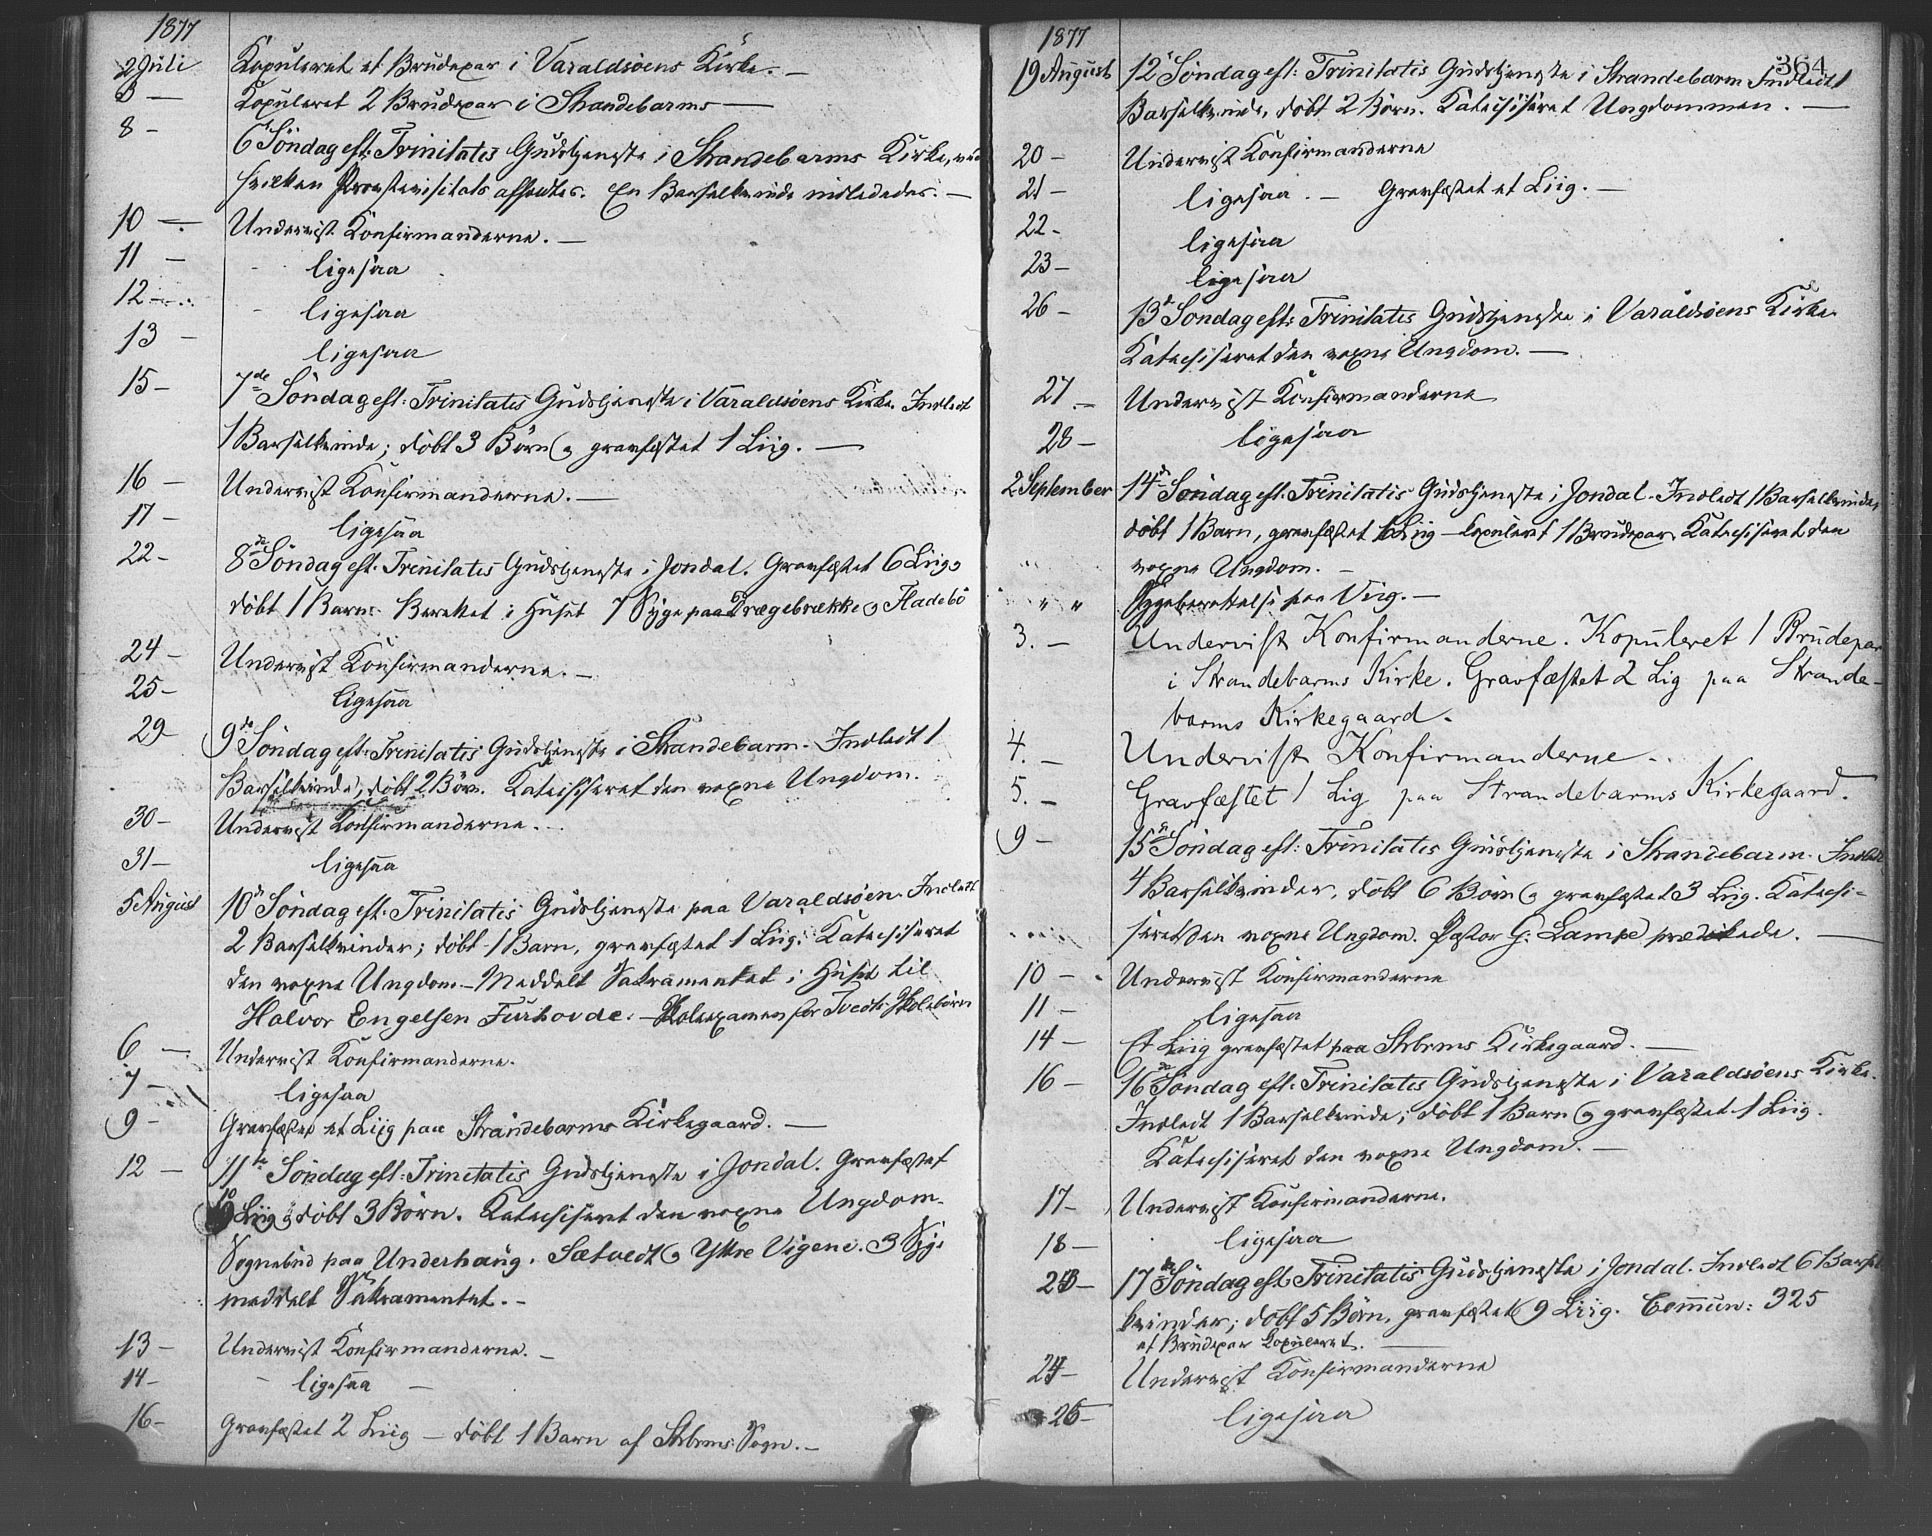 1877
2 Juli Kopuleret et Brudepar i Varaldsöens Kirke. —
3 — Kopuleret 2 Brudepar i Strandebarms —
8 — 6te Söndag eft: Trinitatis Gudstjeneste i Strandebarms Kirke, ved
hvilken Provstevisitats afholdtes. En Barselkvinde indlededes. —
10 — Undervist Konfirmanderne. —
11 — ligesaa
12 — ligesaa
13 — ligesaa
15 — 7de Söndag eft: Trinitatis Gudstjeneste i Varaldsöens Kirke. Indledt
1 Barselkvinde; döbt 3 Börn og gravfæstet 1 Liig. —
16 — Undervist Konfirmanderne. —
17 — ligesaa
22 — 8de Söndag eft. Trinitatis Gudstjeneste i Jondal. Gravfæstet 6 Liig,
döbt 1 Barn. Berettet i Huset 7 Syge paa Brægebrække og Fladebö
24 — Undervist Konfirmanderne. —
25 — ligesaa
29 9de Söndag eft: Trinitatis Gudstjeneste i Strandebarm. Indledt 1
Barselkvinde, döbt 2 Börn. Katechiseret den voxne Ungdom.
30 — Undervist Konfirmanderne. —
31 — ligesaa
5 August 10de Söndag eft. Trinitatis Gudstjeneste paa Varaldsöen. Indledt
2 Barselkvinder; döbt 1 Barn, gravfæstet 1 Liig. Katechiseret
den voxne Ungdom. — Meddelt Sakramentet i Huset til
Halvor Engelsen Furhovde. — Skoleexamen for Tvedts Skolebörn
6 — Undervist Konfirmanderne.
7 — ligesaa
9 — Gravfæstet et Liig paa Strandebarms Kirkegaard. —
12 — 11te Söndag eft: Trinitatis Gudstjeneste i Jondal. Gravfæstet
10 Liig, döbt 3 Börn. Katechiseret den voxne Ungdom.
Sognebud paa Underhaug. Sætvedt og Yttre Vigene. 3 Syge
meddelt Sakramentet. —
13 — Undervist Konfirmanderne. —
14 — ligesaa —
16 — Gravfæstet 2 Liig — döbt 1 Barn af Strbrms Sogn. —
1877
364
19 August 12te Söndag eft: Trinitatis Gudstjeneste i Strandebarm Indledt 1
Barselkvinde, döbt 2 Börn. Katechiseret Ungdommen. —
20 — Undervist Konfirmanderne
21 — ligesaa. — Gravfæstet et Liig. —
22 — ligesaa
23 — ligesaa
26 — 13de Söndag eft: Trinitatis Gudstjeneste i Varaldsöens Kirke.
Katechiseret den voxne Ungdom. —
27 — Undervist Konfirmanderne
28 — ligesaa
2 September 14de Söndag eft. Trinitatis Gudstjeneste i Jondal. Indledt 1 Barselkvinde,
döbt 1 Barn, gravfæstet Liig — kopuleret 1 Brudepar. Katechiseret den
voxne Ungdom. —
" " Sygeberettelse paa Virg. —
3. — Undervist Konfirmanderne. Kopuleret 1 Brudepar
i Strandebarms Kirke. Gravfæstet 2 Lig paa Strande-
barms Kirkegaard.
4. — Undervist Konfirmanderne.
5. — Gravfæstet 1 Lig paa Strandebarms Kirkegaard.
9 — 15de Söndag eft: Trinitatis Gudstjeneste i Strandebarm. Indledt
4 Barselkvinder, döbt 6 Börn og gravfæstet 3 Liig. Katechi-
seret den voxne Ungdom. Pastor G. Lampe prædikede. —
10 — Undervist Konfirmanderne
11 — ligesaa
14 — Et Liig gravfæstet paa Strbrms Kirkegaard. —
16 — 16de Söndag eft: Trinitatis Gudstjeneste i Varaldsöens Kirke.
Indledt 1 Barselkvinde; döbt 1 Barn og gravfæstet 1 Liig.
Katechiseret den voxne Ungdom. —
17 — Undervist Konfirmanderne.
18 — ligesaa
23 — 17de Söndag eft Trinitatis Gudstjeneste i Jondal. Indledt 6 Barsel
kvinder; döbt 5 Börn, gravfæstet 9 Liig. Commun: 325
et Brudepar kopuleret. —
24 — Undervist Konfirmanderne
25 — ligesaa